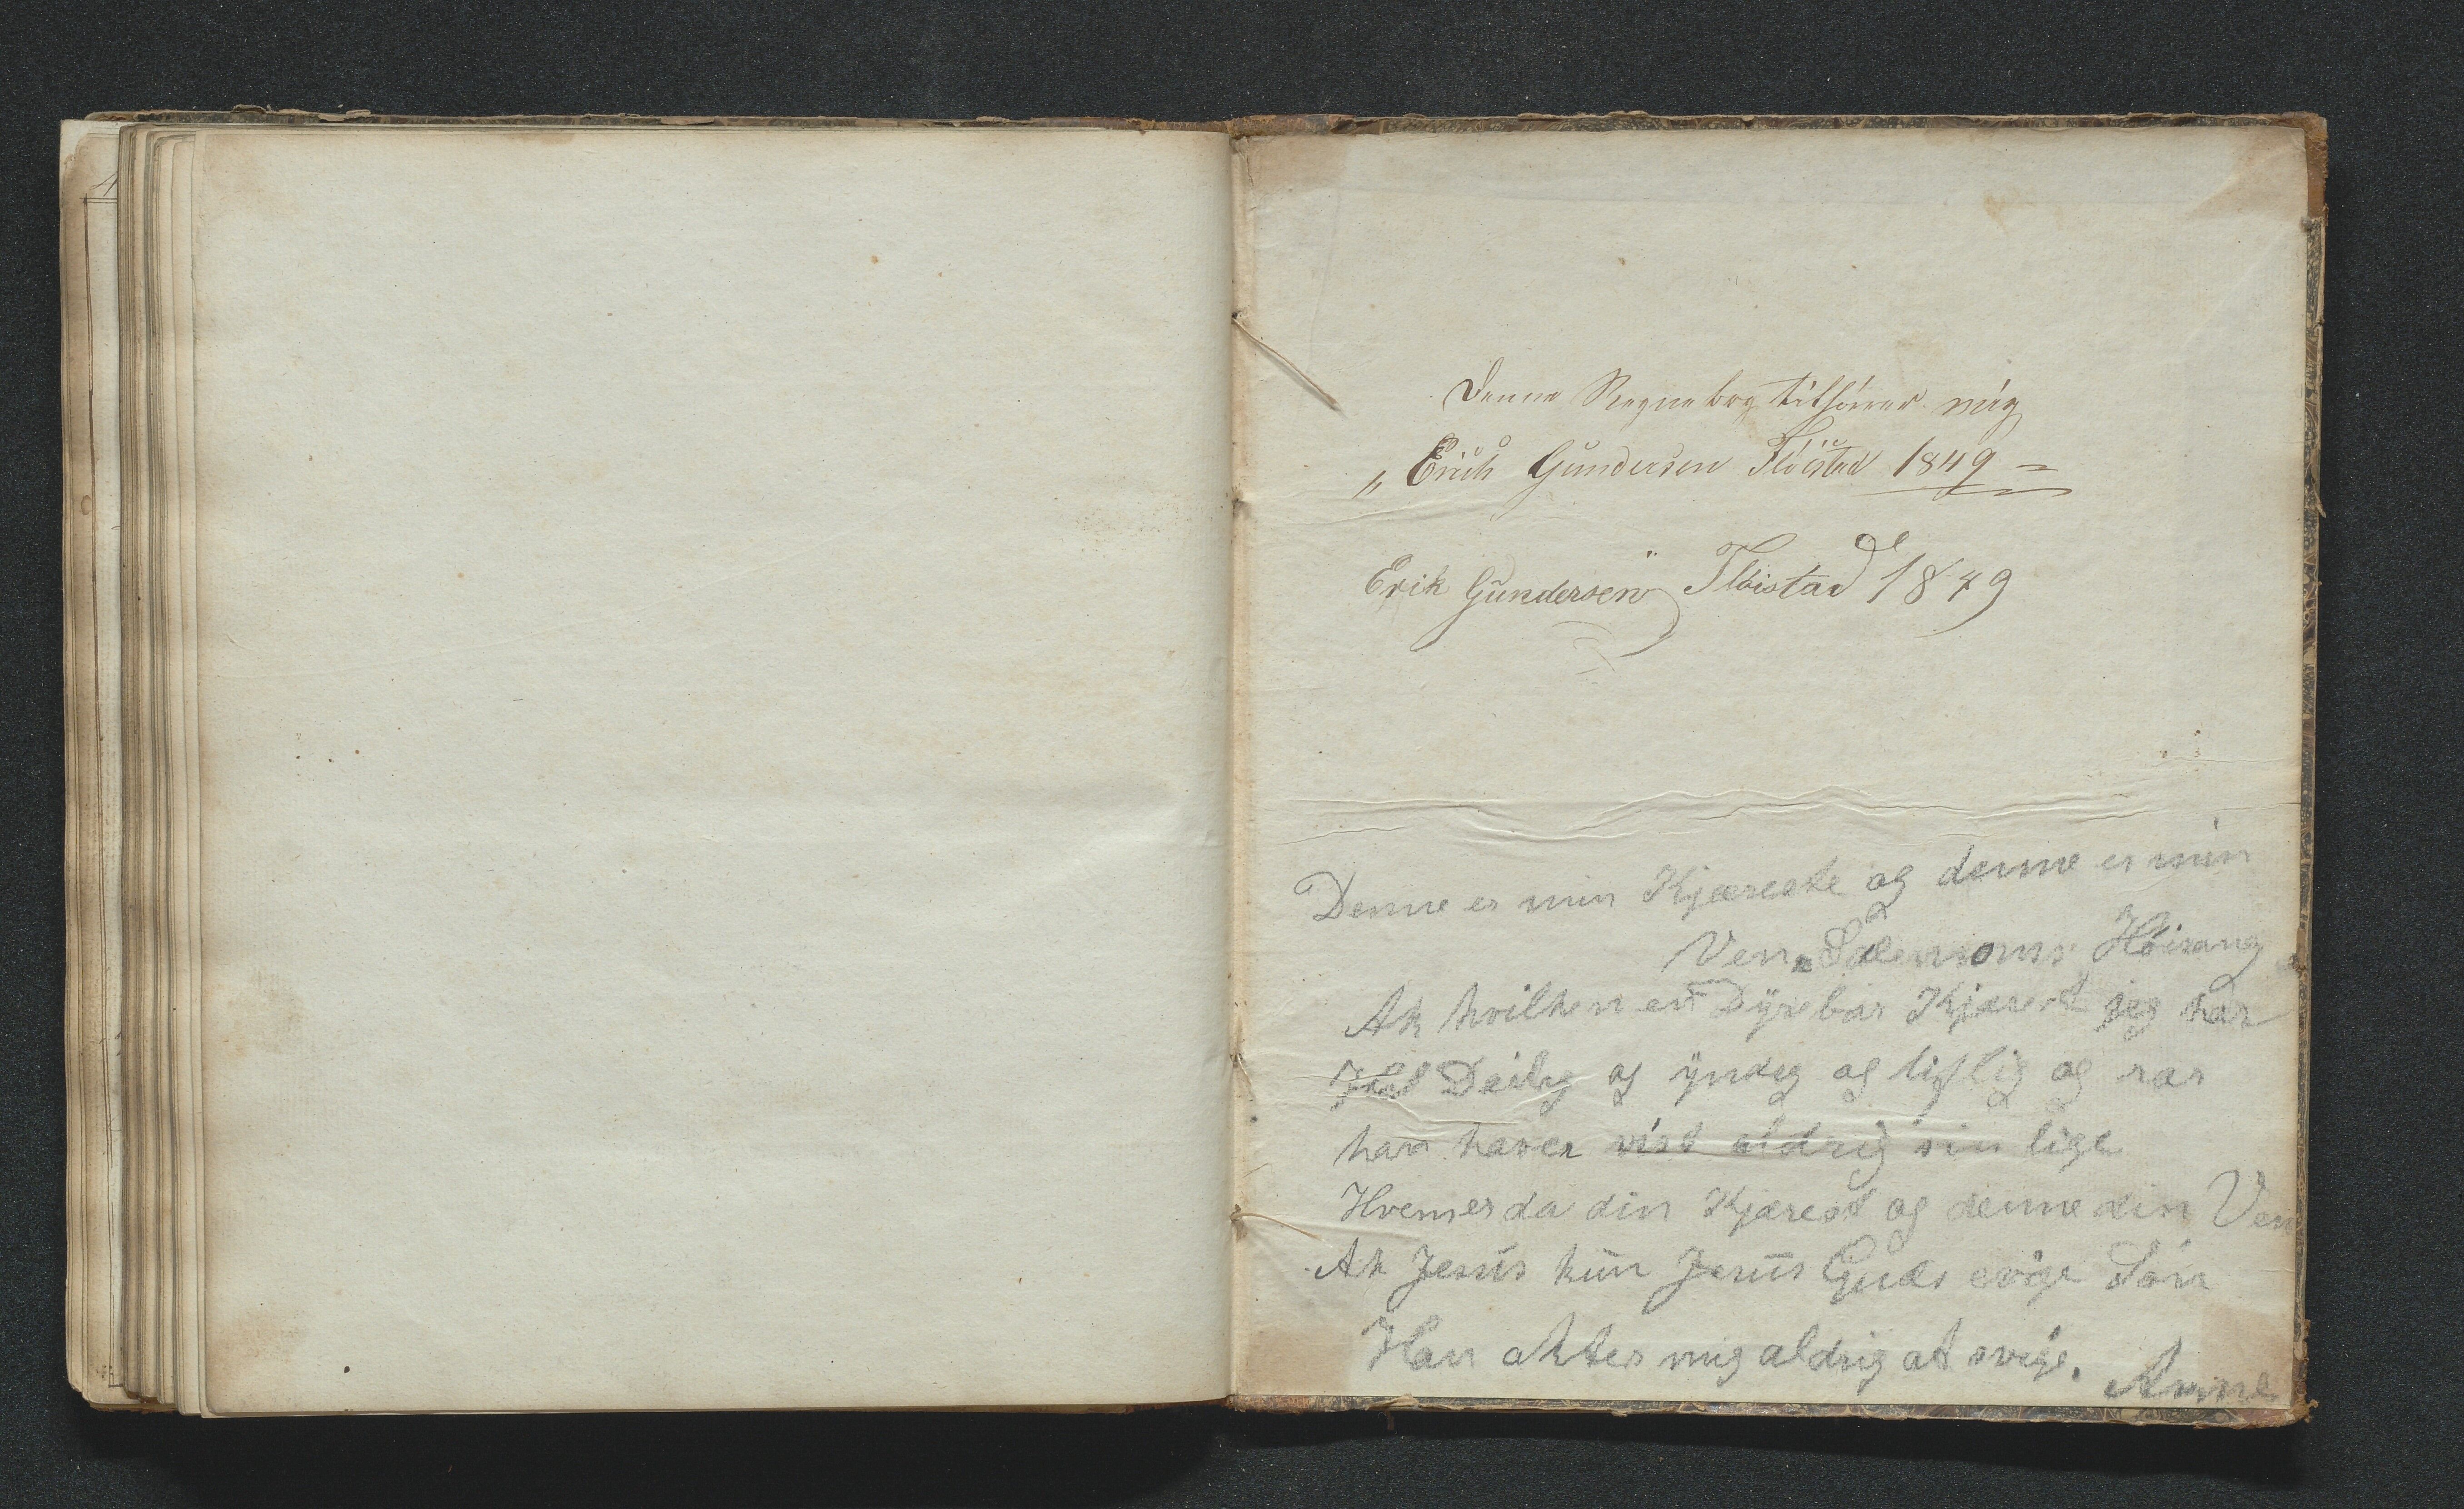 4
Denne Regnebog tilhörrer mig
„ Erich Gundersen Flöistad 1849 =
Erik Gundersen Flöistad 1849
Denne er min Kjæreste og denne er min
Ven. Salemoms Höisang
Ak hvilken en Dyrebar Kjærest jeg har
Heel Deilig og yndig og liflig og rar
han haver vist aldrig sin lige
Hvem er da din Kjærest og denne din Ven
Ak Jesus kun Jesus Guds evige Sön
Han akter mig aldrig at svige.
Anne